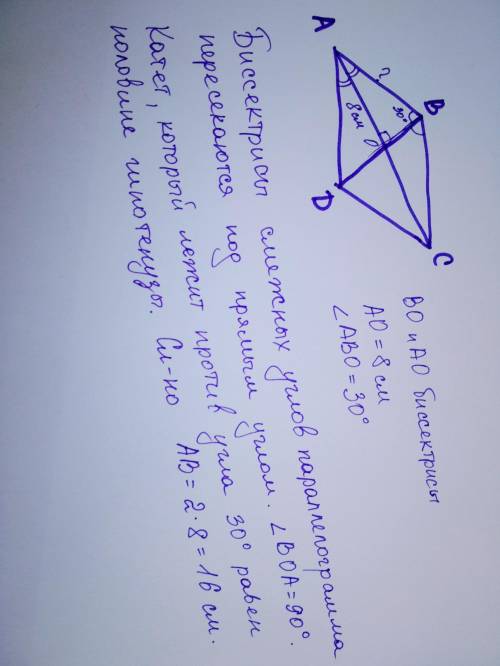 A
B
C
D
O
?
30°
8 см
BO и AO биссектрисы
AO = 8 см
∠ABO = 30°
Биссектрисы смежных углов параллелограмма
пересекаются под прямым углом. ∠BOA = 90°.
Катет, который лежит против угла 30° равен
половине гипотенузы. Сл-но AB = 2·8 = 16 см.